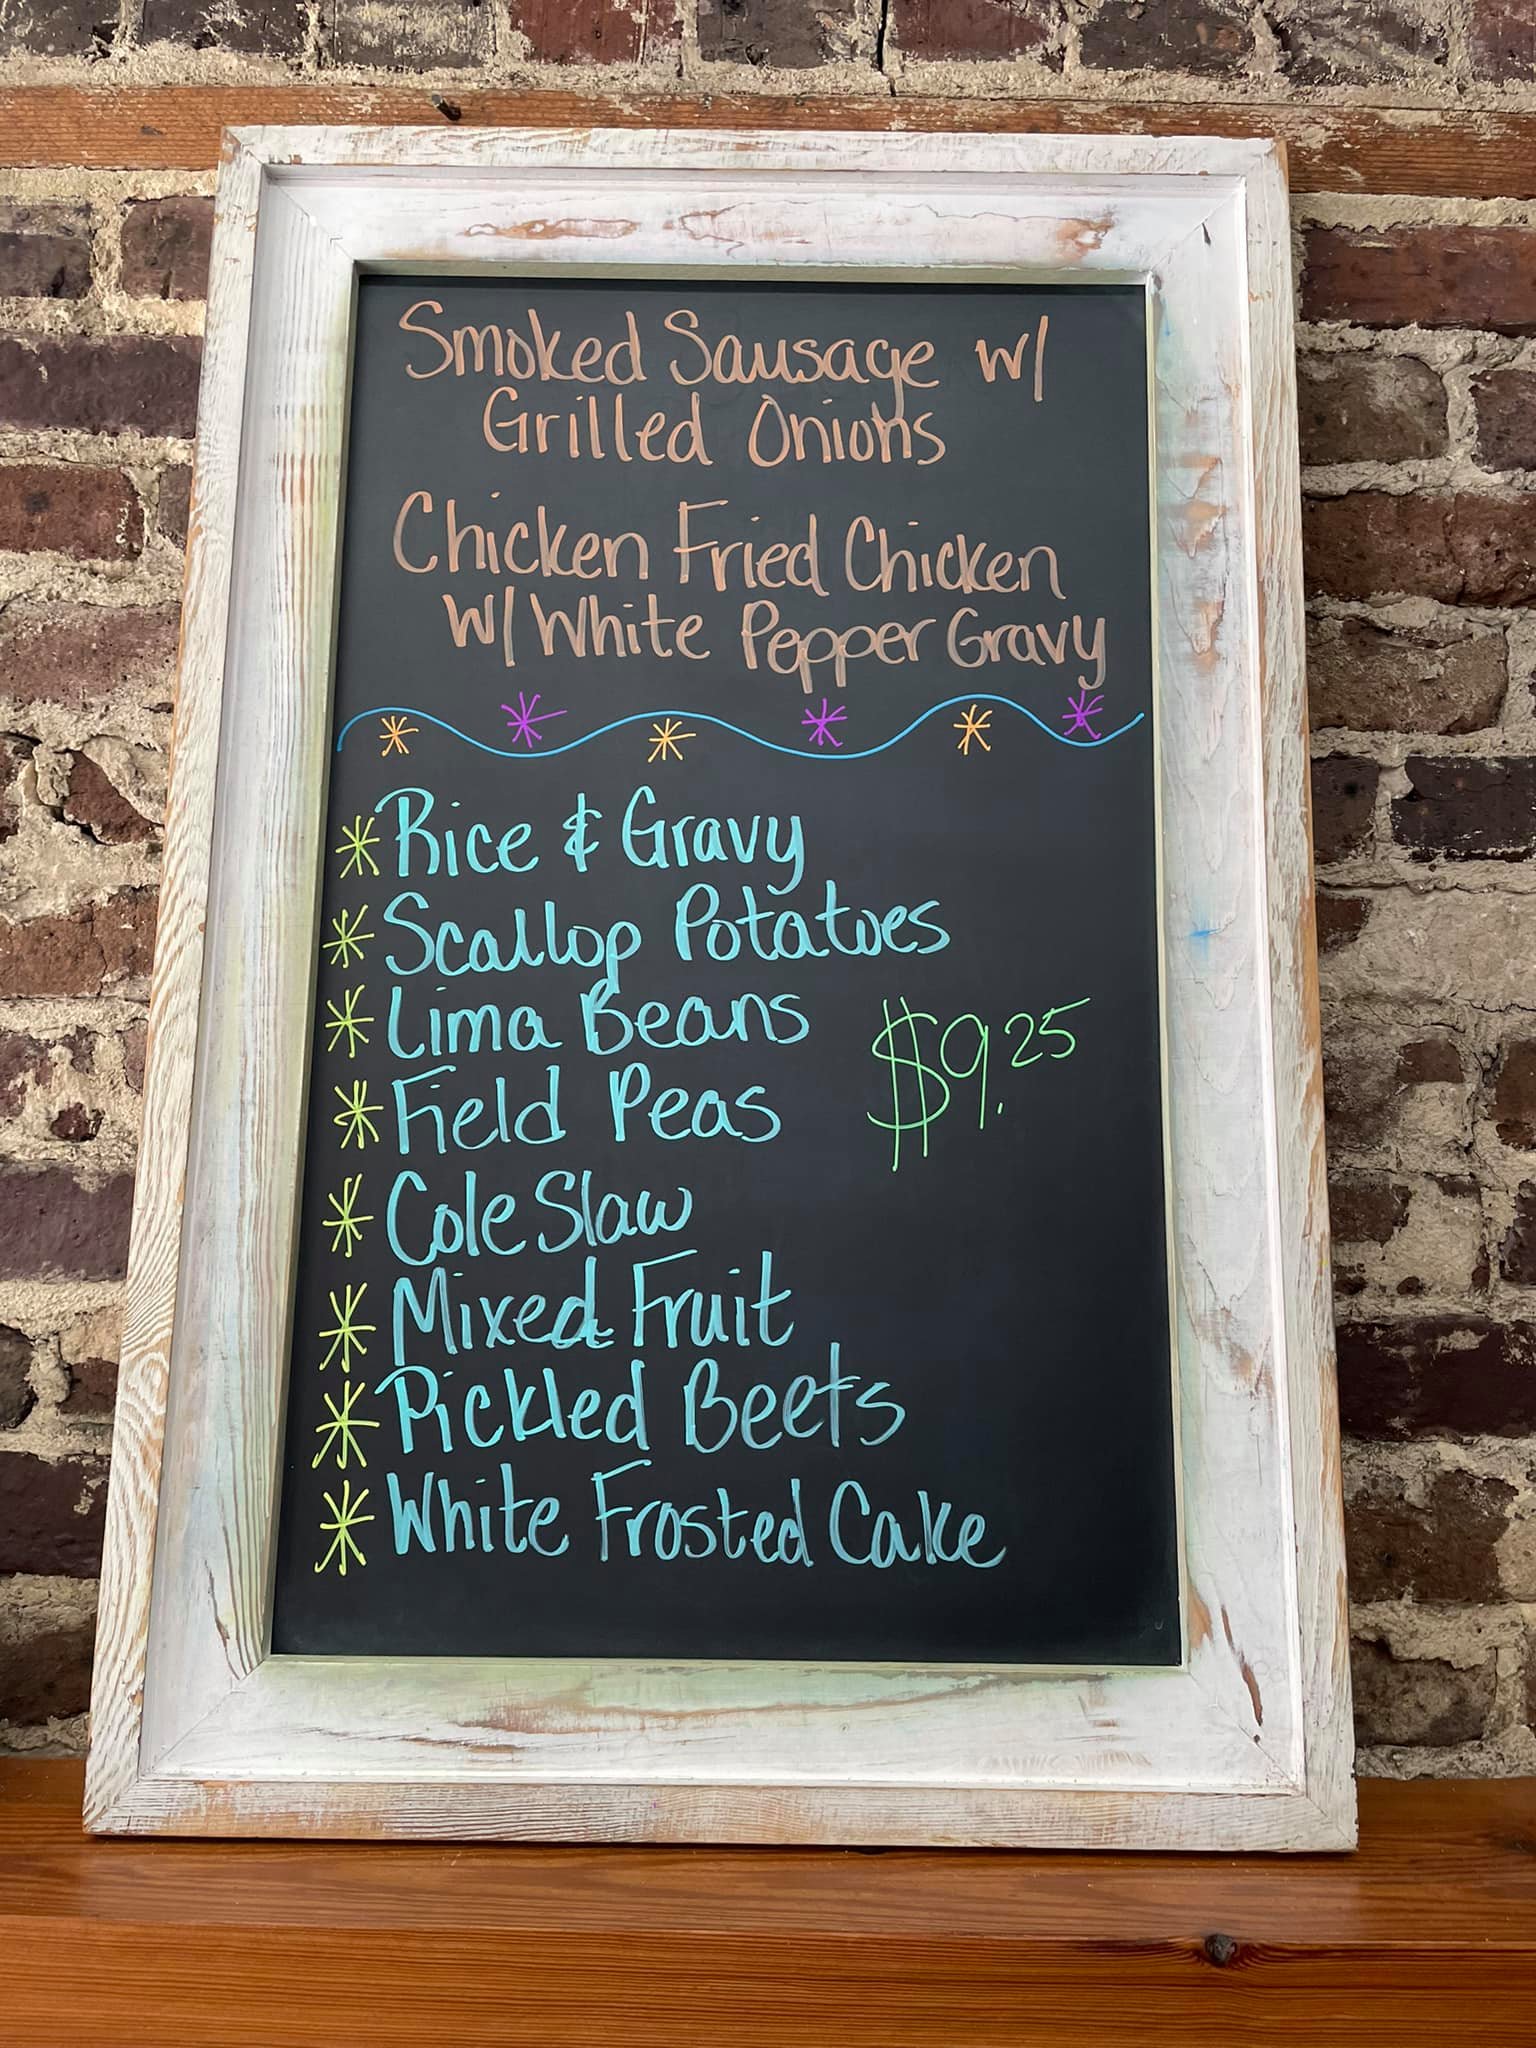 Smoked Sausage w/
Grilled Onions
Chicken Fried Chicken
w/ White Pepper Gravy
Rice & Gravy
Scallop Potatoes
Lima Beans
Field Peas
$9.25
Cole Slaw
Mixed Fruit
Pickled Beets
White Frosted Cake